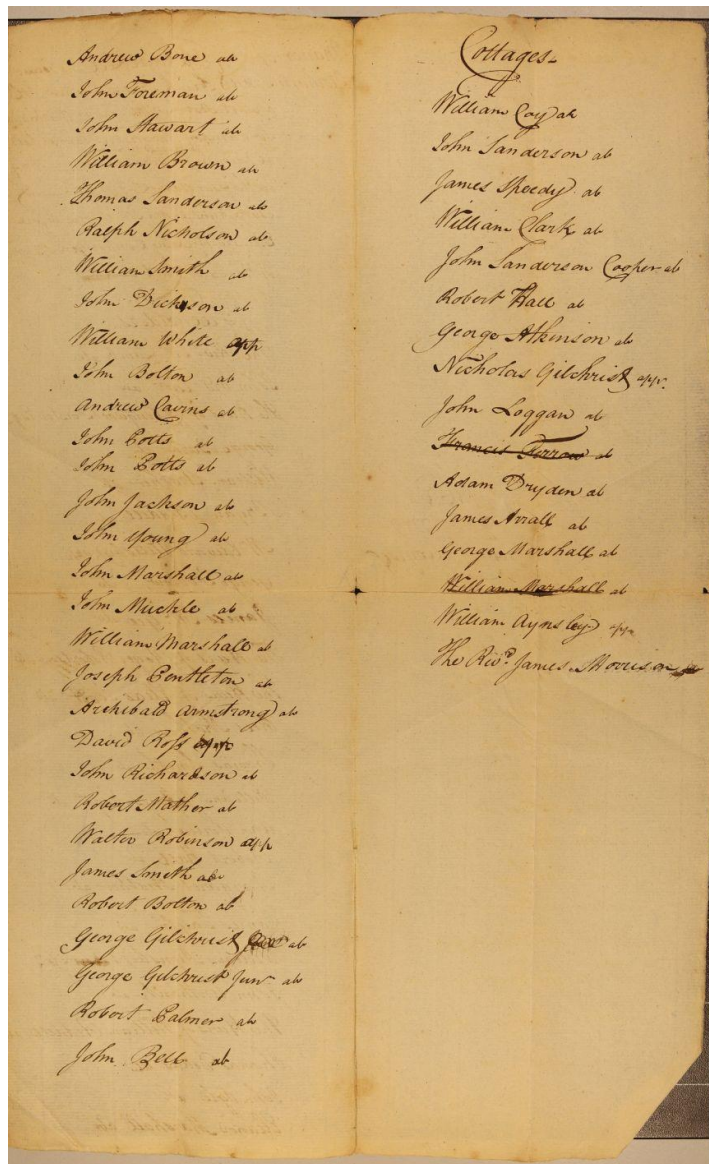 Andrew Bone ab
John Foreman ab
John Stawart ab
William Brown ab
Thomas Sanderson ab
Ralph Nicholson ab
William Smith ab
John Dickson ab
William White app
John Bolton ab
Andrew Cavins ab
John Potts ab
John Potts ab
John Jackson ab
John Young ab
John Marshall ab
John Muckle ab
William Marshall ab
Joseph Pentleton ab
Archibald Armstrong ab
David Ross app
John Richardson ab
Robert Mather ab
Walter Robinson app
James Smith ab
Robert Bolton ab
George Gilchrist ab
George Gilchrist Junr ab
Robert Palmer ab
John Bell ab
Cottages
William Coy ab
John Sanderson ab
James Speedy ab
William Clark ab
John Sanderson Cooper ab
Robert Hall ab
George Atkinson ab
Nicholas Gilchrist app.
John Loggan ab
Francis Ferrow ab
Adam Dryden ab
James Arrall ab
George Marshall ab
William Marshall ab
William Aynsley app
The Revd. James Morrison